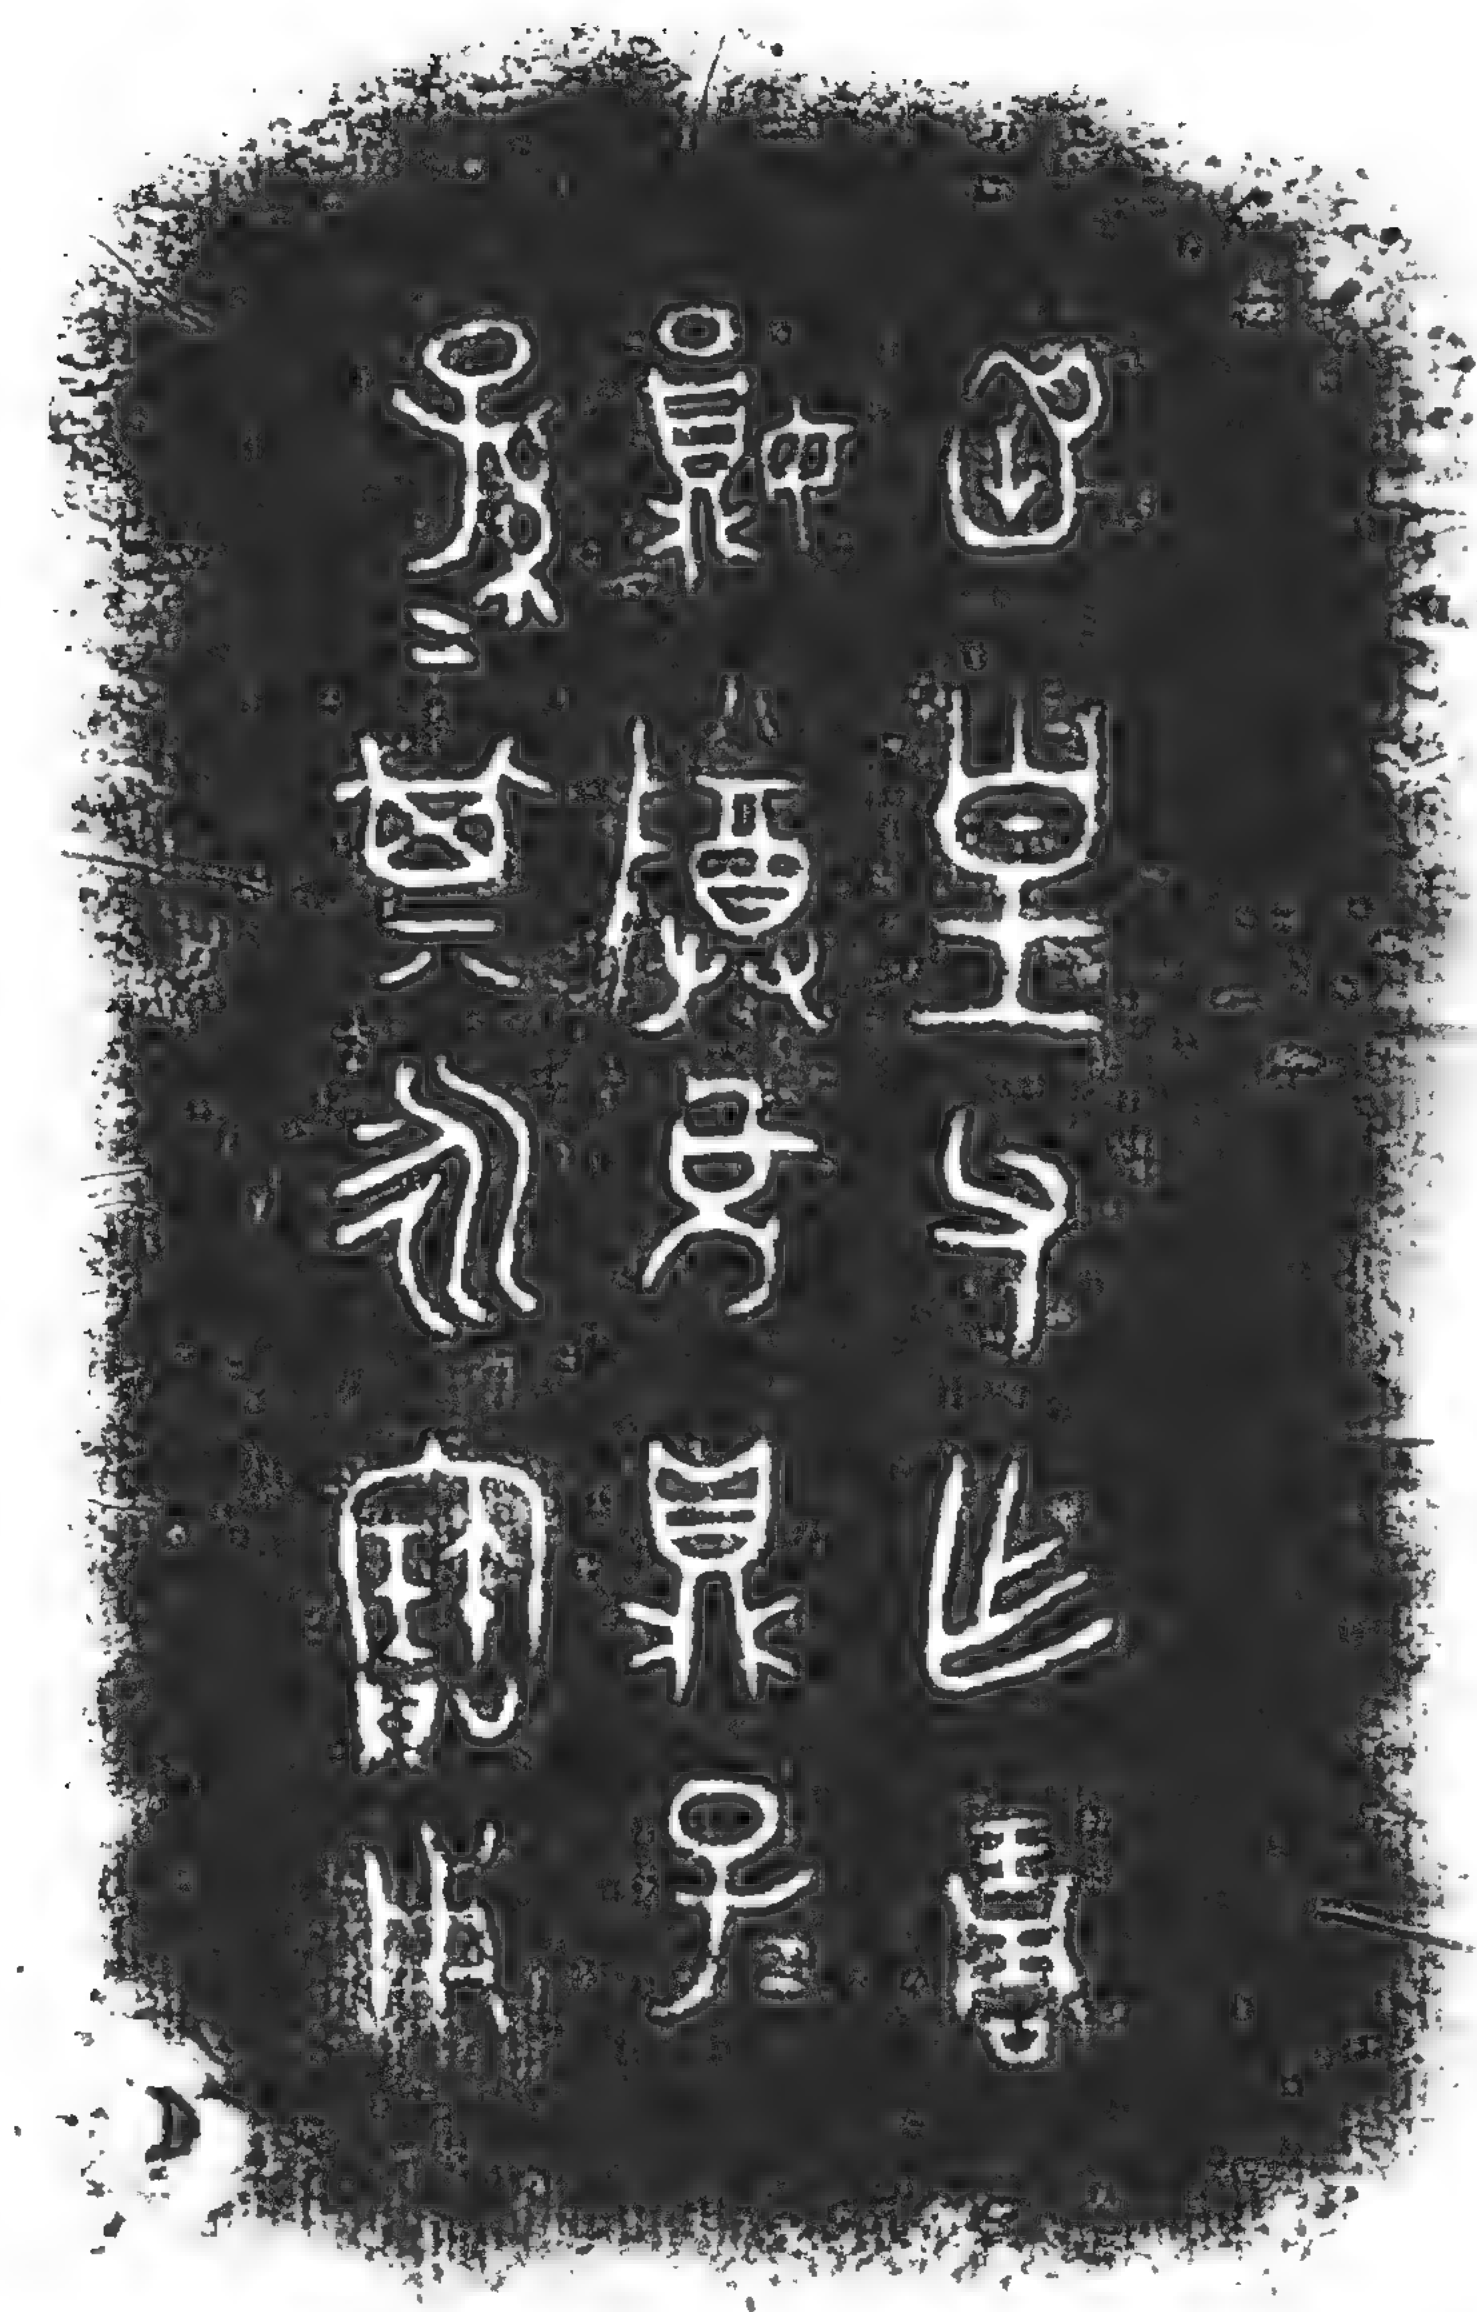 函皇父乍琱
妘尊兔鼎子=
孫=其永寶用